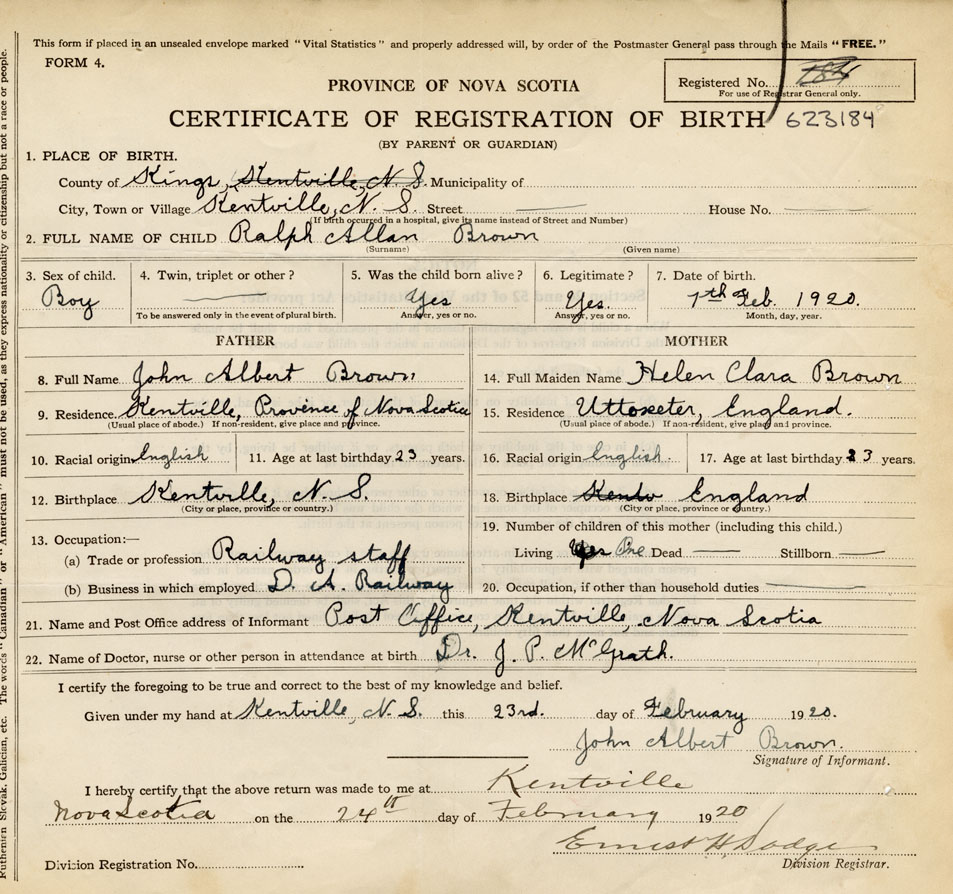 This form if placed in an unsealed envelope marked "Vital Statistics" and properly addressed will, by order of the Postmaster General pass through the Mails "FREE."
FORM 4.
Registered No. 184
For use of Registrar General only.
PROVINCE OF NOVA SCOTIA
CERTIFICATE OF REGISTRATION OF BIRTH 623184
(BY PARENT OR GUARDIAN)
1. PLACE OF BIRTH.
County of Kings, Kentville, N.S. Municipality of
City, Town or Village Kentville, N. S. Street House No.
(If birth occurred in a hospital, give its name instead of Street and Number)
2. FULL NAME OF CHILD Ralph Allan Brown
(Surname) (Given name)
3. Sex of child. 4. Twin, triplet or other? 5. Was the child born alive? 6. Legitimate? 7. Date of birth.
Boy Yes Yes. 7th Feb. 1920.
To be answered only in the event of plural birth. Answer, yes or no. Answer, yes or no. Month, day, year.
FATHER MOTHER
8. Full Name John Albert Brown 14. Full Maiden Name Helen Clara Brown
9. Residence Kentville, Province of Nova Scotia 15. Residence Uttoxeter, England.
(Usual place of abode.) If non-resident, give place and province. (Usual place of abode.) If non-resident, give place and province.
10. Racial origin English 11. Age at last birthday 23 years. 16. Racial origin English. 17. Age at last birthday 23 years.
12. Birthplace Kentville, N. S. 18. Birthplace England
(City or place, province or country.) (City or place, province or country.)
13. Occupation:— 19. Number of children of this mother (including this child.)
(a) Trade or profession Railway staff Living One Dead Stillborn
(b) Business in which employed D. A. Railway 20. Occupation, if other than household duties
21. Name and Post Office address of Informant Post Office, Kentville, Nova Scotia
22. Name of Doctor, nurse or other person in attendance at birth Dr. J. P. McGrath.
I certify the foregoing to be true and correct to the best of my knowledge and belief.
Given under my hand at Kentville, N. S. this 23rd. day of February 1920.
John Albert Brown.
Signature of Informant.
I hereby certify that the above return was made to me at Kentville
Nova Scotia on the 24th day of February 1920
Ernest H Dodge
Division Registration No. Division Registrar.
Ruthenien Slovak, Galician, etc. The words "Canadian" or "American" must not be used, as they express nationality or citizenship but not a race or people.